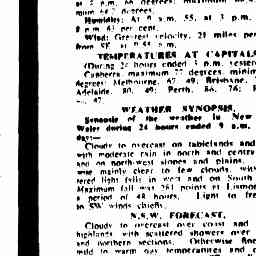 at 3 p.m. 66 degrees; maximum
mum 64.7 degrees.
Humidity: At 9 a.m. 55, at 3 p.m.
9 p.m. 63 per cent.
Wind: Greatest velocity, 21 miles per
from SE at
TEMPERATURES AT CAPITALS
(During 24 hours ended 3 p.m. yester
Canberra, maximum 77 degrees, minim
degrees; Melbourne, 67, 49; Brisbane,
Adelaide, 80, 49; Perth, 86, 76;
47.
WEATHER SYNOPSIS.
Synopsis of the weather in New
Wales during 24 hours ended 9 a.m.
day:—
Cloudy to overcast on tablelands and
with moderate rain in north and centra
and on north-west slopes and plains,
wise mainly clear to few clouds, with
tered light falls in west and on South
Maximum fall was 261 points at Lismor
a period of 48 hours. Light to fre
to SW winds chiefly.
N.S.W. FORECAST.
Cloudy to overcast over coast and
highlands with scattered showers over
and northern sections. Otherwise fine
mild to warm day temperatures and